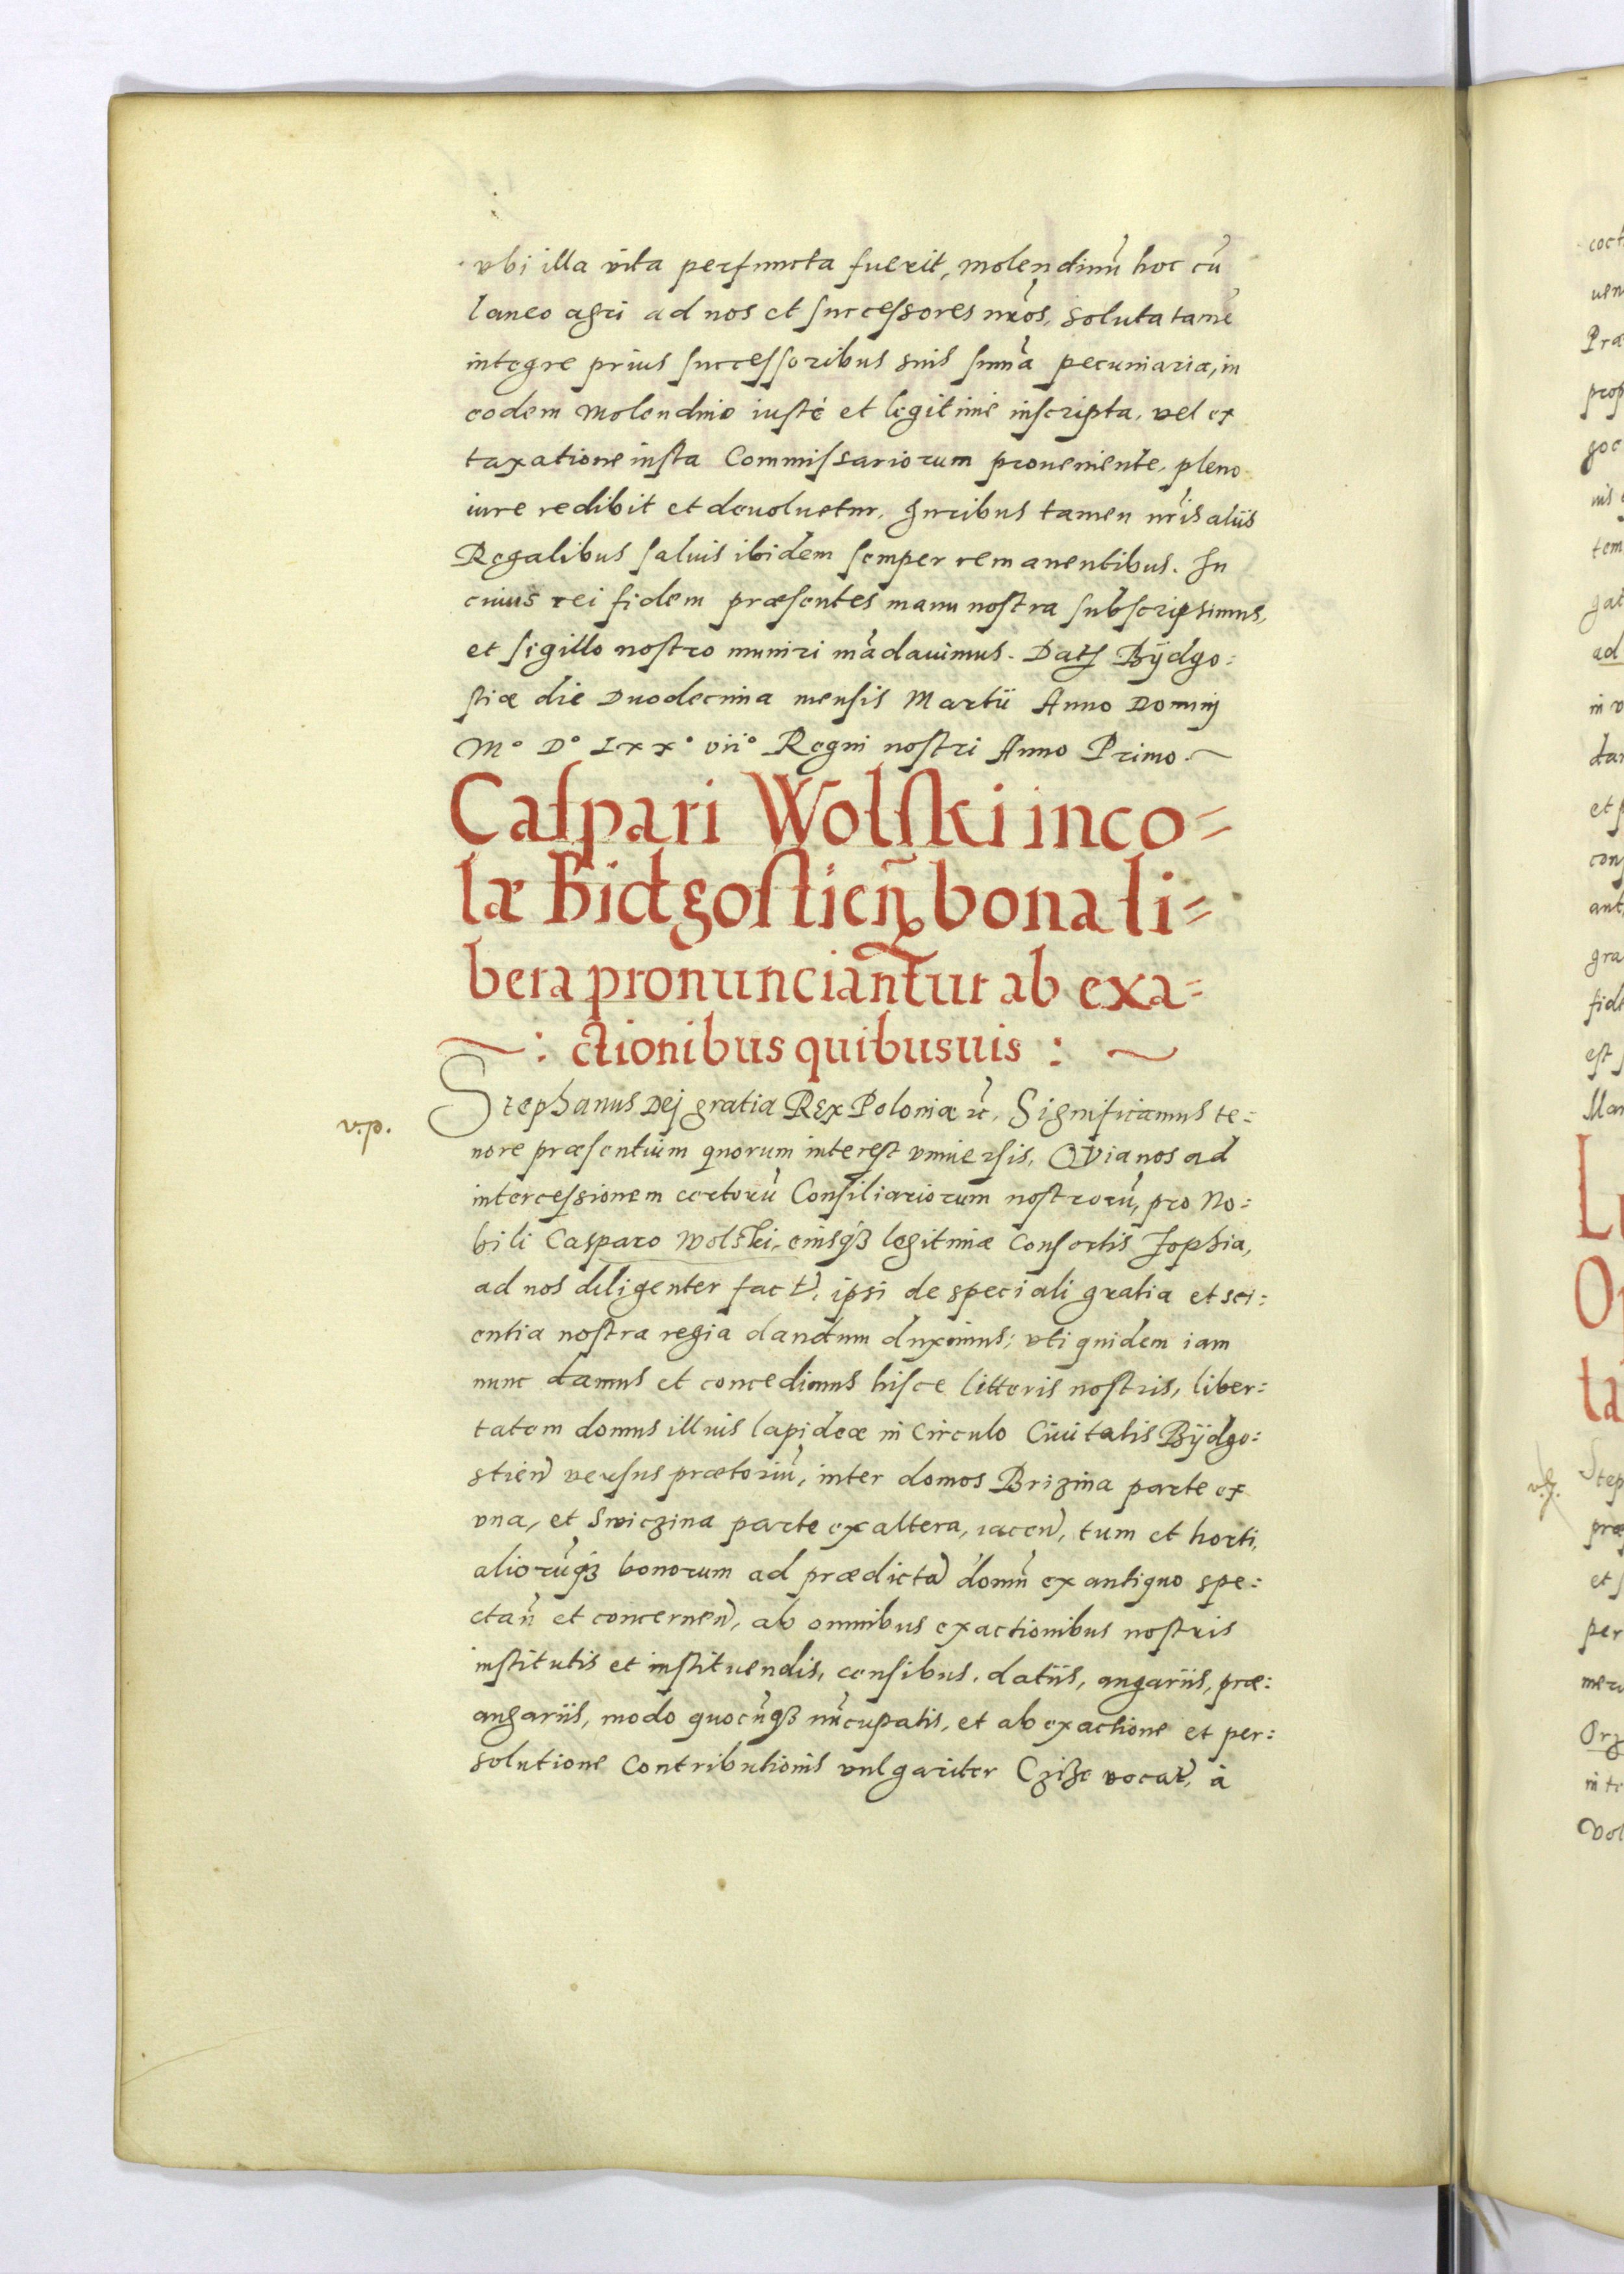 vbi illa vita perfuncta fuerit, molendinū hoc cū
laneo agri ad nos et successores nr̃os, soluta tamē
integre prius successoribus suis sum̃a pecuniaria, in
eodem molendino iustè et legitimè inscripta, vel ex
taxatione iusta Commissariorum proueniente, pleno
iure redibit et deuoluetur, Iuribus tamen nr̃is aliis
Regalibus saluis ibidem semper remanentibus. In
cuius rei fidem præsentes manu nostra subscripsimus,
et sigillo nostro muniri mādauimus. Datƺ Bÿdgo:
stiæ die Duodecima mensis Martii Anno Dominj
M° D° Lxx° vii° Regni nostri Anno Primo.
Caspari Wolski inco=
læ Bidgostieñ bona li=
bera pronunciantur ab exa=
: ctionibus quibusuis :
v.p.
Stephanus Dej gratia Rex Poloniæ ꝛc̃. Significamus te:
nore præsentium quorum interest vniuersis, Qvia nos ad
intercessionem certorū Consiliariorum nostrorū, pro No:
bili Casparo Wolski, eiusqꝫ legitimæ Consortis Zophia,
ad nos diligenter fact̃, ipsi de speciali gratia et sci:
entia nostra regia dandum duximus; vti quidem iam
nunc damus et concedimus hisce litteris nostris, liber:
tatem domus illuis lapideæ in Circulo Ciuitatis Bÿdgo:
stieñ versus prætoriū, inter domos Brizina parte ex
vna, et Swiczina parte ex altera, iaceñ, tum et horti,
aliorūqꝫ bonorum ad prædictā domū ex antiquo spe:
ctañ et concerneñ, ab omnibus exactionibus nostris
institutis et instituendis, censibus, datiis, angariis, præ:
angariis, modo quocūqꝫ nūcupatis, et ab exactione et per:
solutione Contributionis vulgariter Czize vocat̃, à